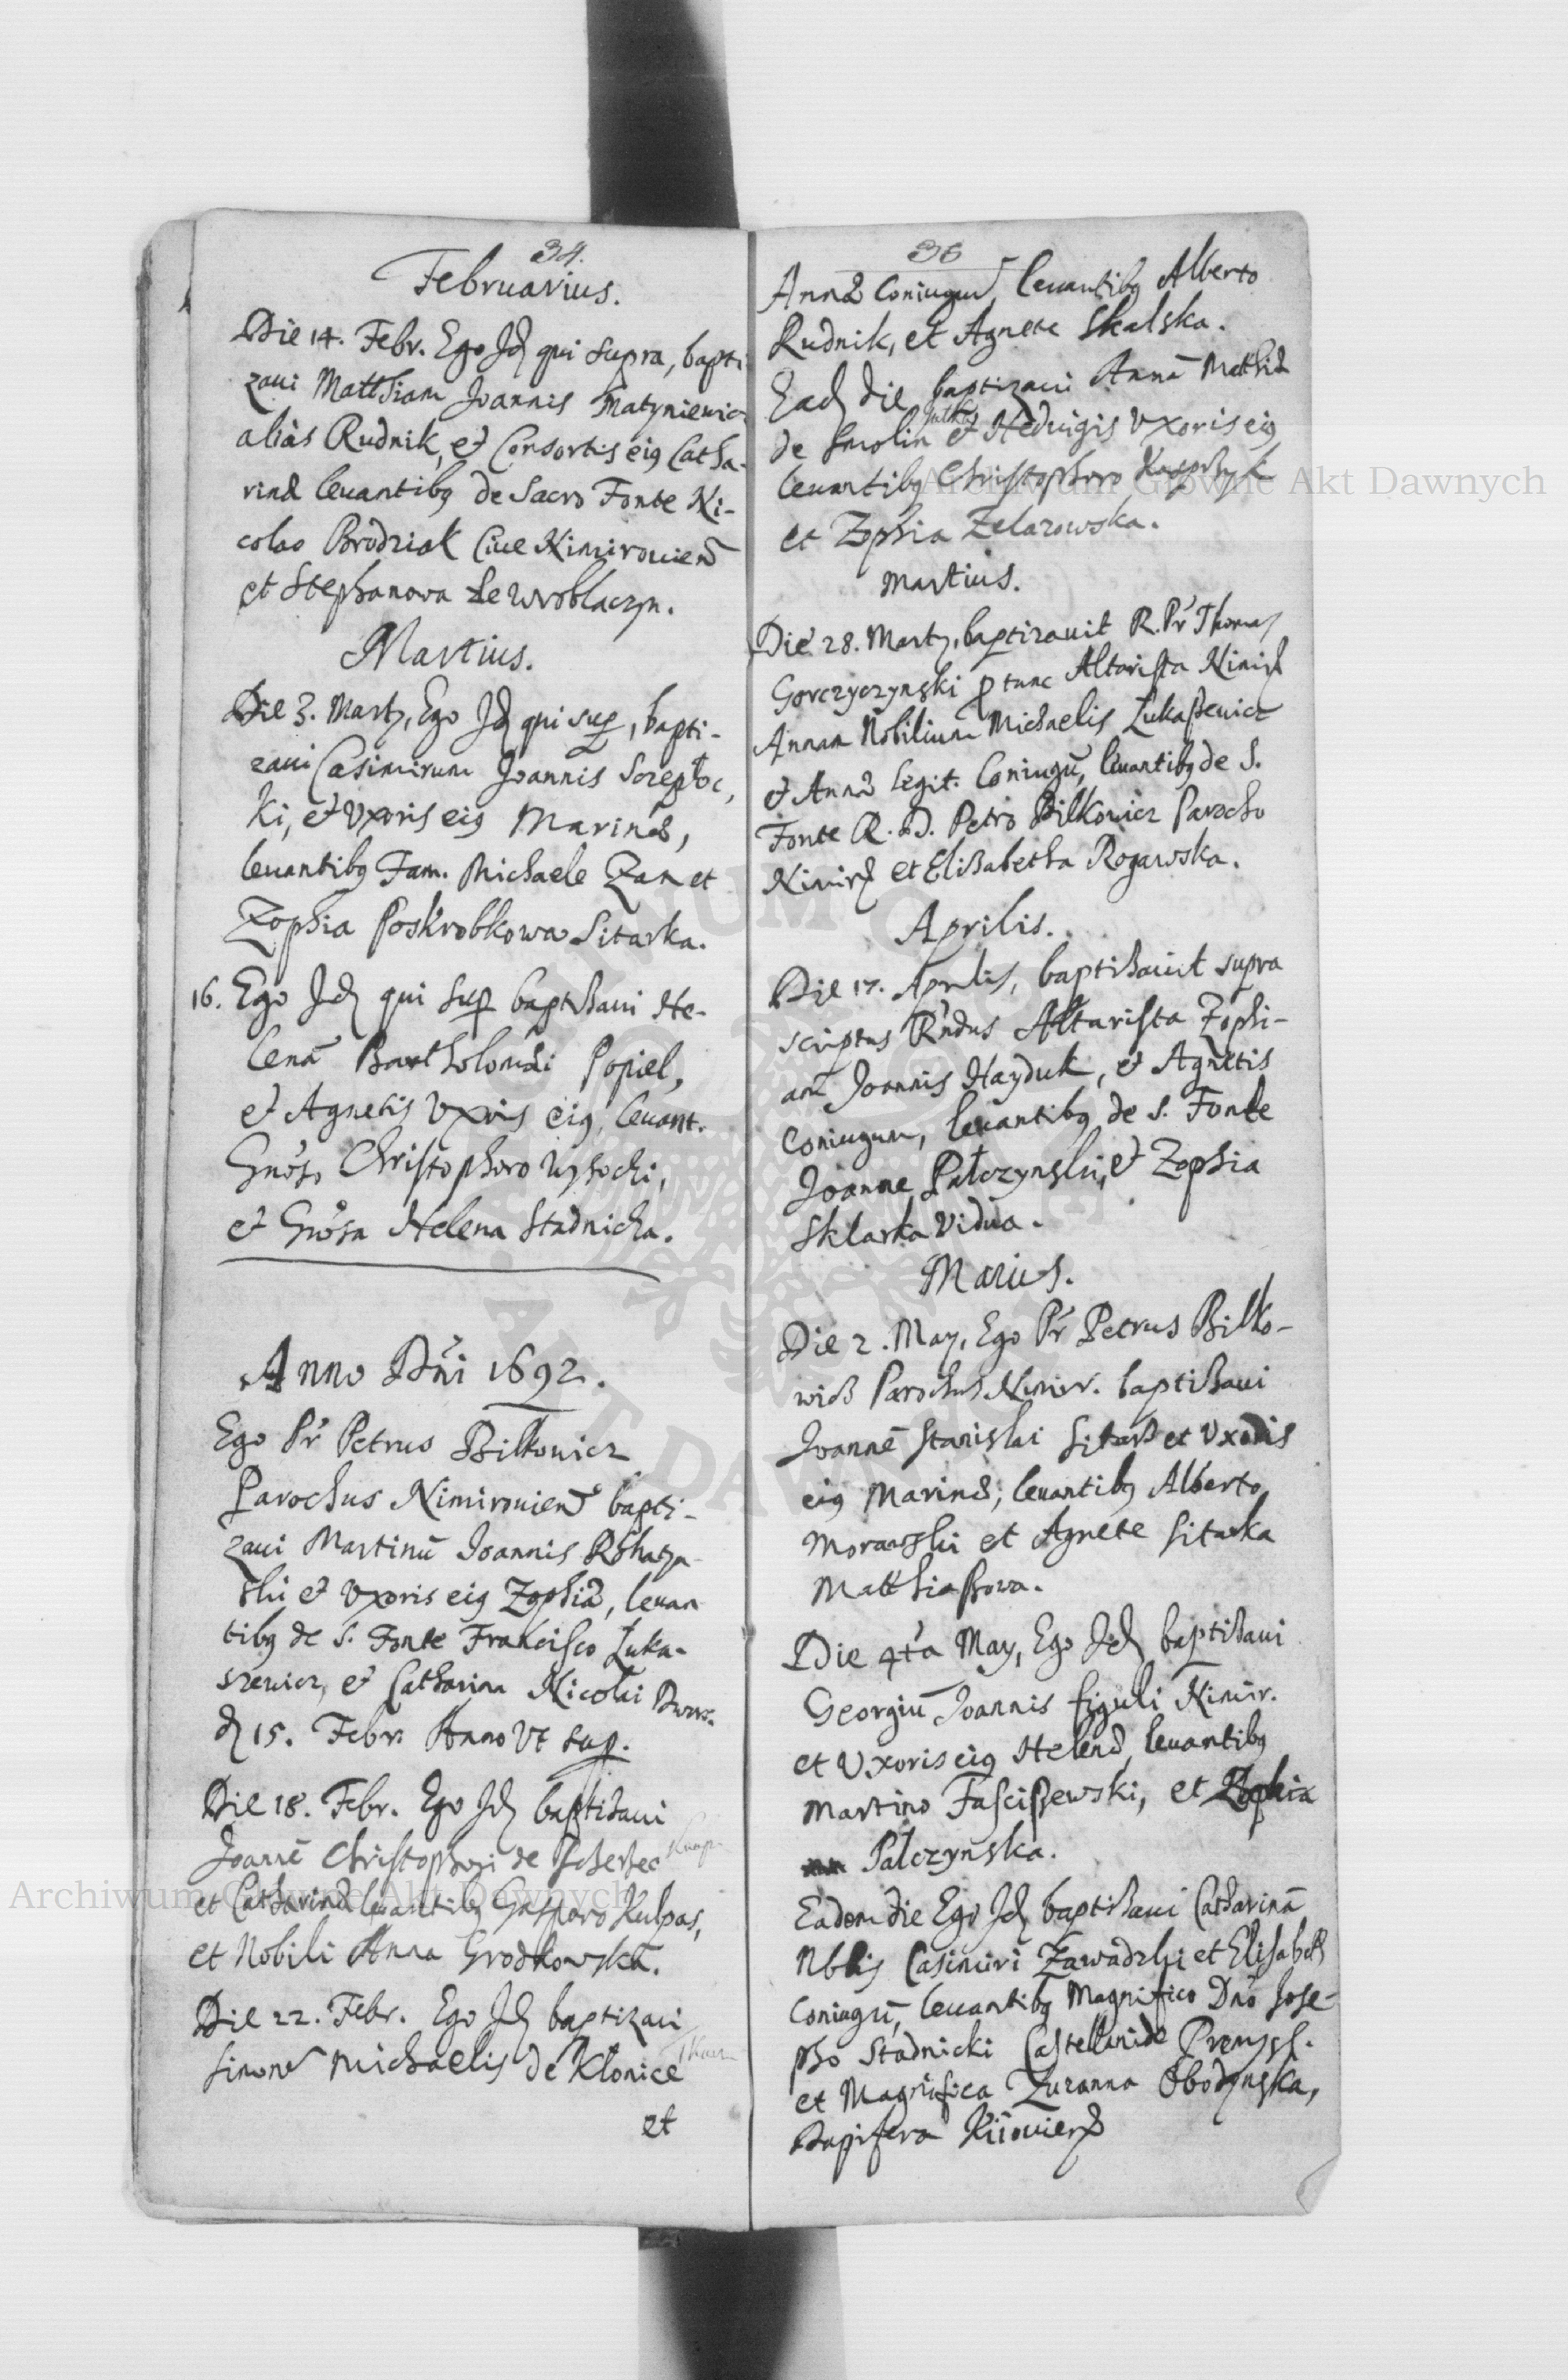 34.
Februarius.
Die 14. Febr. Ego Jd qui supra, bapti
zaui Matthiam Joannis Matyniewicz
aliàs Rudnik, et Consortis eig Catha-
rinæ leuantibg de Sacro Fonte Ni-
colao Brodziak Ciue Nimirouien
et Stephanowa ze Wroblaczyn.
Martius.
Die 3. Marty, Ego Jd qui sup, bapti-
zaui Casimirum Joannis
ki, et Vxoris eig Marinæ,
leuantibg Fam. Michaele Zan et
Zophia Poskrobkowa Sitarka.
16. Ego Jd qui sup baptisaui He-
lenā Bartholomæi Popiel,
et Agnetis Vxoris eig, leuant.
Gnoso Christophoro Wysocki,
et Gnosa Helena Stadnicka.
Anno Dni 1692.
Ego Pr Petrus Bilkowicz
Parochus Nimirouien bapti-
zaui Martinū Joannis
ski et Vxoris eig Zophiæ, leuan
tibg de S. Fonte Francisco Luka-
szewicz, et Catharina Nicolai
d 15. Febr. Anno Vt sup.
Die 18. Febr. Ego Jd baptisaui
Joannē Christophori de
et Catharinæ leuantibg Gasparo Kulpas,
et Nobili Anna Grodkowska.
Die 22. Febr. Ego Jd baptizaui
Simonē Michaelis de Klonice
et
35
Annæ Coniugum, leuantibg Alberto
Rudnik, et Agnete Skalska.
Ead die baptizaui Annā Matthiæ
de Smolin et Hedwigis Vxoris eig
leuantibg Christophoro Kasprzyk
et Zophia Zelazowska.
Martius.
Die 28. Marty, baptizauit R. Pr Thomas
Gorczyczynski p tunc Altarista Nimir
Annam Nobilium Michaelis Lukaßewicz
et Annæ legit. Coniugū, leuantibg de S.
Fonte R. D. Petro Bilkowicz Parocho
Nimir et Elisabetha Rogawska.
Aprilis.
Die 17. Aprilis, baptisauit supra
scriptus Rndus Altarista Zophi-
am Joannis Hayduk, et Agnetis
Coniugum, leuantibg de S. Fonte
Joanne Palczynski, et Zophia
Sklarka Vidua.
Maius.
Die 2. May, Ego Pr Petrus Bilko-
wicz Parochus Nimir. baptisaui
Joannē Stanislai Sitarz et Vxoris
eig Marinæ; leuantibg Alberto
Morawski et Agnete Sitarka
Matthiaßowa.
Die 4ta May, Ego Jd baptisaui
Georgiū Joannis figuli Nimir.
et Vxoris eig Helenæ, leuantibg
Martino Fascißewski, et Zophia
Palczynska.
Eadem die Ego Jd baptisaui Catharinā
Nblis Casimiri Zawadzki et Elisabeth
Coniugū, leuantibg Magnifico Dno Jose-
pho Stadnicki Castellanide Premysl.
et Magnifica Zuzanna Obodynska,
Dapifera Kiiouien
Archiwum Główne Akt Dawnych
Archiwum Główne Akt Dawnych